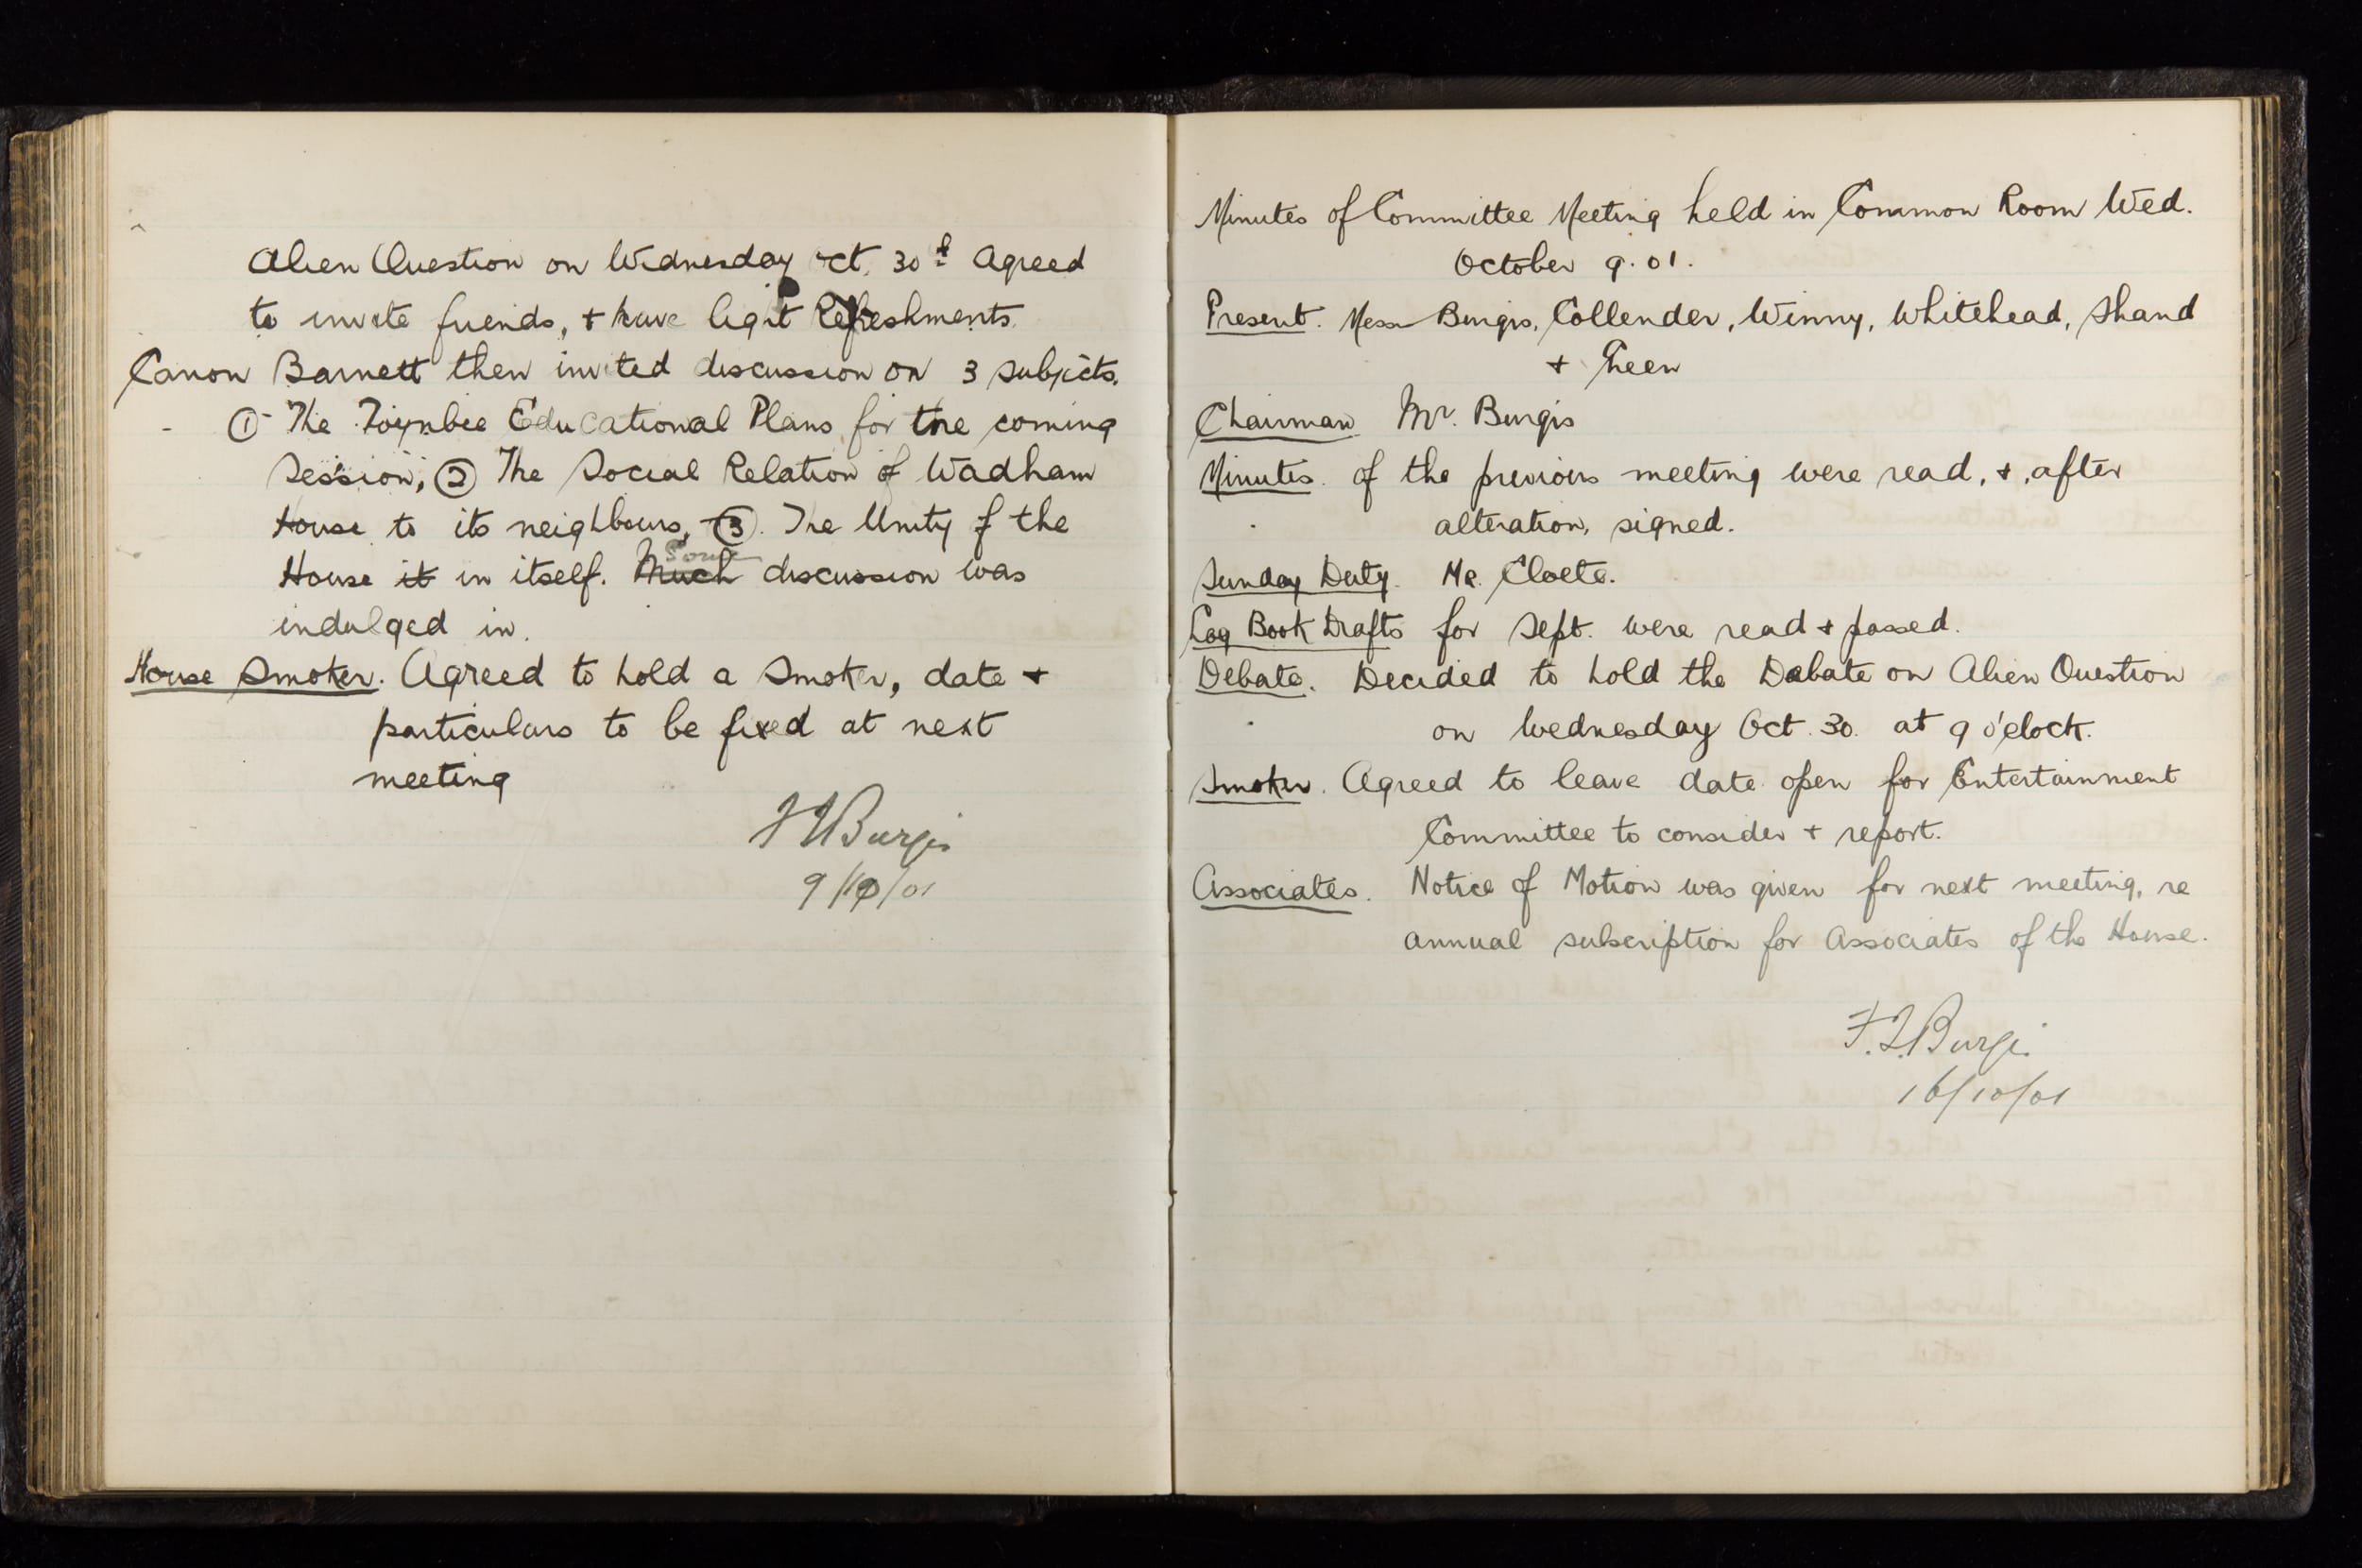 Alien Question on Wednesday Oct. 30th Agreed
to invite friends, + have light Refreshments.
Canon Barnett then invited discussion on 3 subjects.
① The Toynbee Educational Plans for the coming
session, ② The Social Relation of Wadham
House to its neighbours, ③. The Unity of the
House it in itself. Much Some discussion was
indulged in.
House Smoker. Agreed to hold a Smoker, date +
particulars to be fixed at next
meeting
Burgis
9/10/01
Minutes of Committee Meeting held in Common Room Wed.
October 9.01.
Present. Messrs Burgis, Collender, Winny, Whitehead, Shand
+ Green
Chairman Mr. Burgis
Minutes. of the previous meeting were read, +, after
alteration, signed.
Sunday Duty. Mr. Cloete.
Log Book Drafts for Sept. were read + passed.
Debate. Decided to hold the Debate on Alien Question
on Wednesday Oct. 30. at 9 o'clock.
Smoker. Agreed to leave date open for Entertainment
Committee to consider + report.
Associates. Notice of Motion was given for next meeting, re
annual subscription for Associates of the House.
Burgis
16/10/01